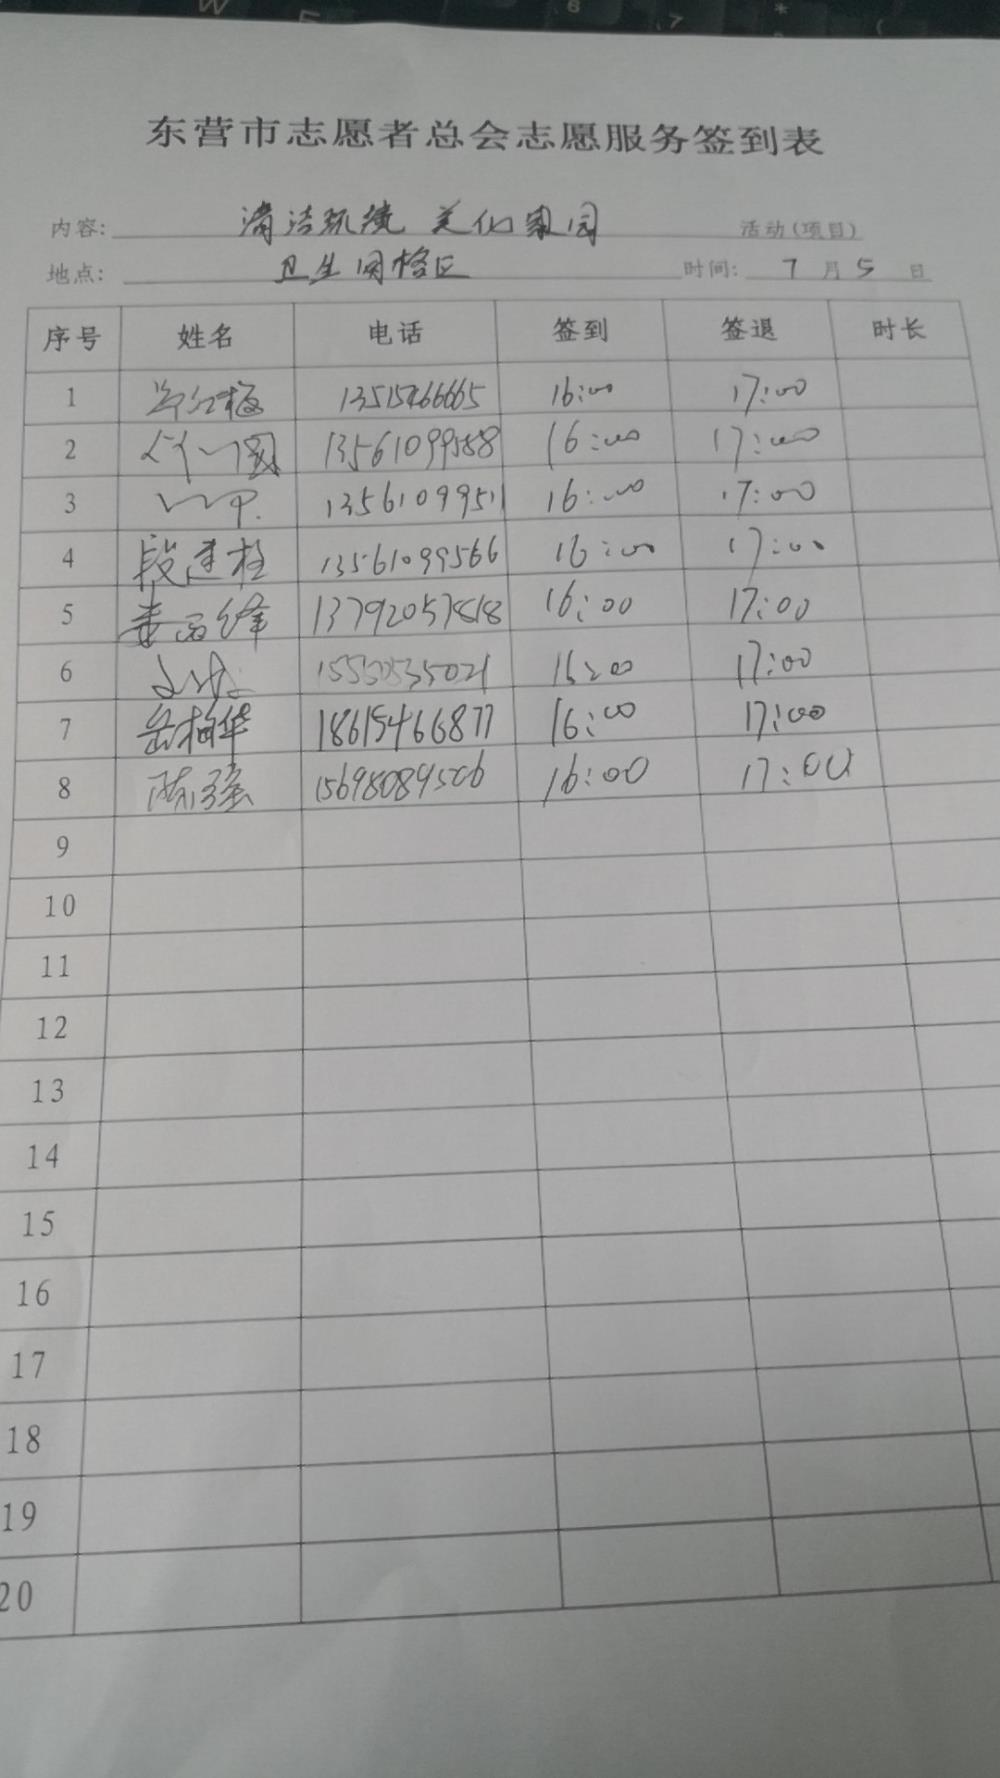 东营市志愿者总会志愿服务签到表
内容: 清洁环境 美化家园 活动(项目)
地点: 卫生网格区 时间: 7 月 5 日
序号 姓名 电话 签到 签退 时长
1 13515466665 16:00 17:00
2 13561099588 16:00 17:00
3 1356109951 16:00 17:00
4 段建柱 13561099566 16:00 17:00
5 13792057818 16:00 17:00
6 15550535021 16:00 17:00
7 岳梅华 18615466877 16:00 17:00
8 陈强 15698089506 16:00 17:00
9
10
11
12
13
14
15
16
17
18
19
20